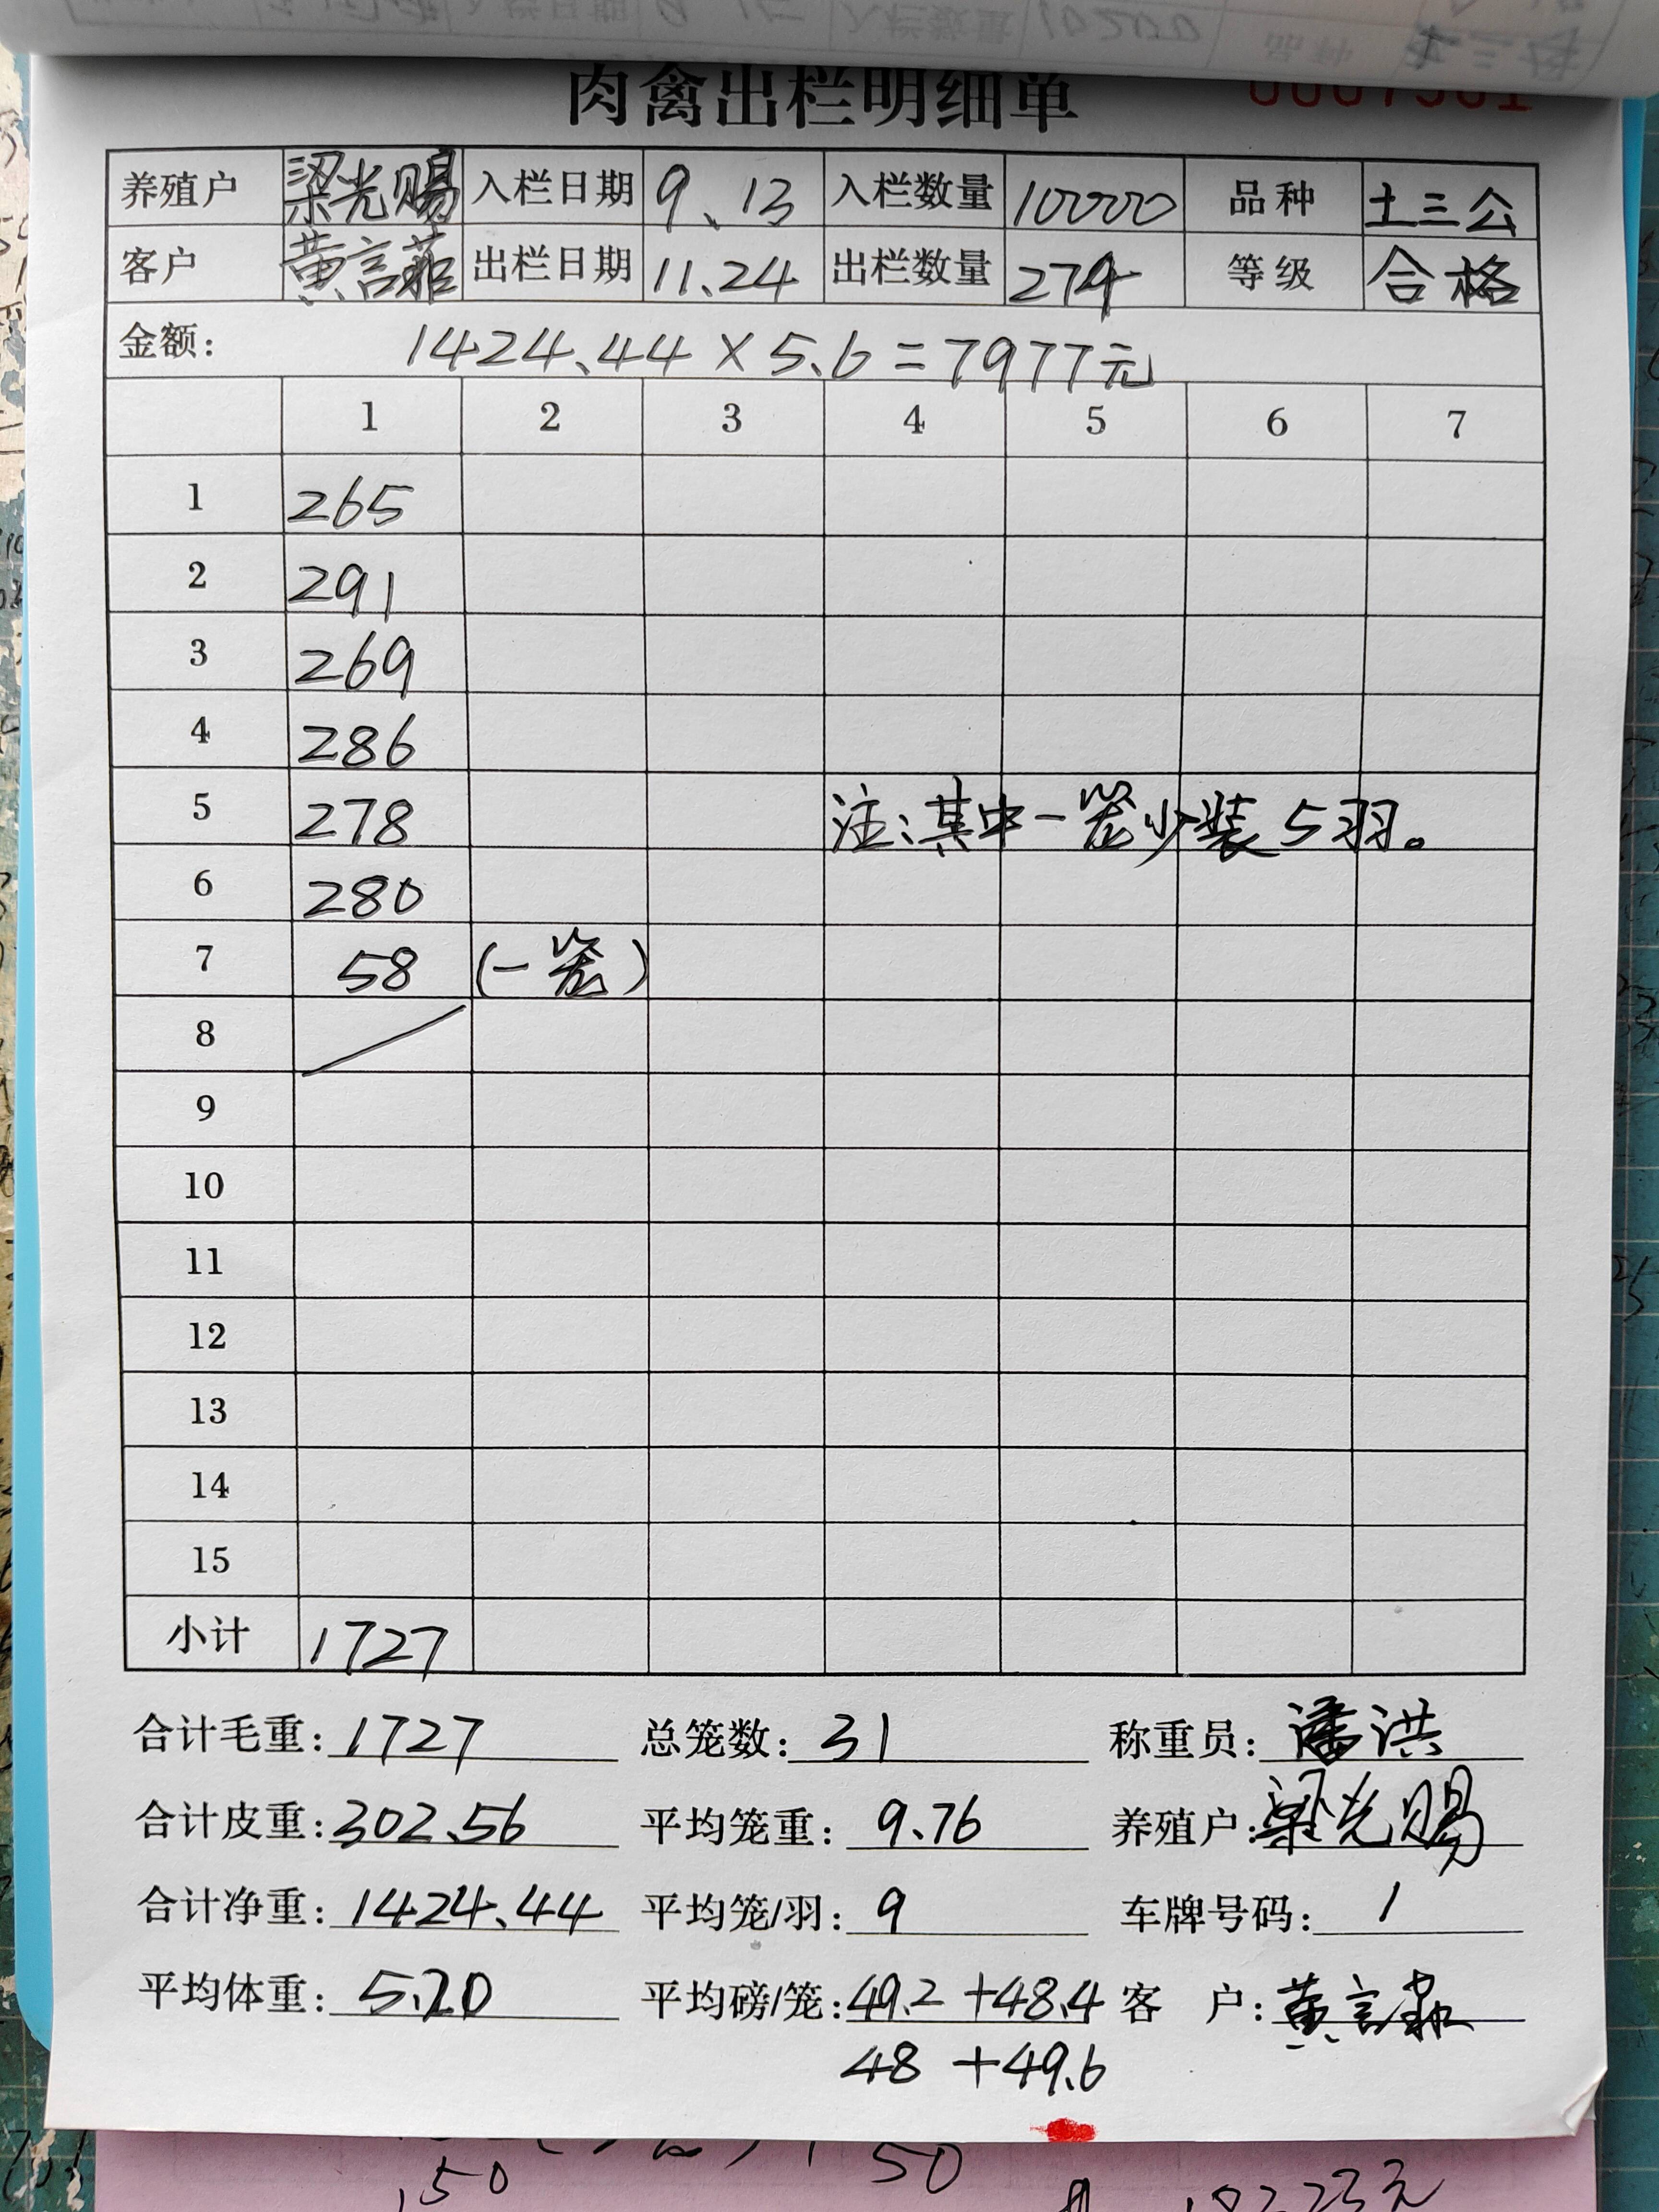 肉禽出栏明细单
养殖户 梁光赐 入栏日期 9、13 入栏数量 10000 品种 土三公
客户 黄言 出栏日期 11.24 出栏数量 274 等级 合格
金额: 1424.44×5.6=7977元
1 2 3 4 5 6 7
1 265
2 291
3 269
4 286
5 278 注:其中一笼少装5羽。
6 280
7 58 (一笼)
8
9
10
11
12
13
14
15
小计 1727
合计毛重: 1727 总笼数: 31 称重员: 潘洪
合计皮重: 302.56 平均笼重: 9.76 养殖户: 梁光赐
合计净重: 1424.44 平均笼/羽: 9 车牌号码: 1
平均体重: 5.20 平均磅/笼: 49.2+48.4 客 户: 黄言
48+49.6
150
50